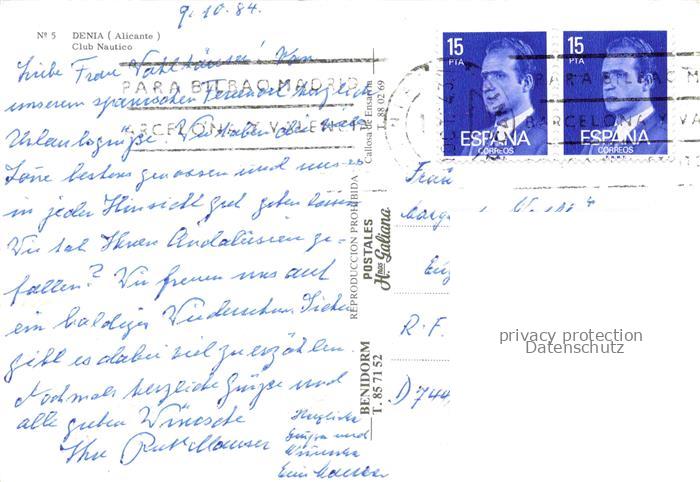 9.10.84.
Nº 5 DENIA ( Alicante )
Club Nautico
Liebe Frau
unserem spanischen herzliche
Urlaubsgrüße. Wir haben
bestens genossen und uns es
in jeder Hinsicht gut gehen lassen
Wie hat Ihnen Andalusien ge-
fallen? Wir freuen uns auf
ein baldiges Wiedersehen. Sicher
gibt es dabei viel zu erzählen.
Nochmals herzliche Grüße und
alle guten Wünsche
Ihre
Herzliche
Grüße und
Wünsche
PARA BILBAO MADRID
BARCELONA Y VALENCIA
Callosa de Ensarriá
T. 88 02 69
REPRODUCCION PROHIBIDA
POSTALES
Hnos Galiana
BENIDORM
T. 85 71 52
15
PTA
ESPAÑA
CORREOS
15
PTA
ESPAÑA
CORREOS
PARA BILBAO M
BARCELONA Y VA
Frau
R. F.
D 744
privacy protection
Datenschutz